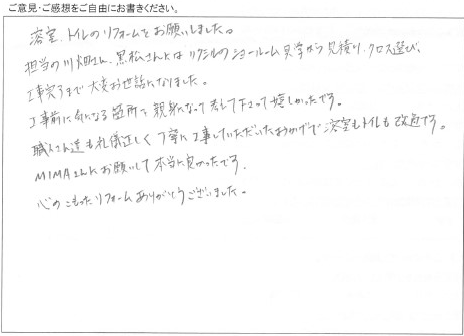 ご意見・ご感想をご自由にお書きください。
浴室、トイレのリフォームをお願いしました。
担当の川畑さん、黒松さんには リクシルのショールーム見学から見積り、クロス選び、
工事完了まで大変お世話になりました。
工事前に気になる箇所も親身になって考えて下さって嬉しかったです。
職人さん達も礼儀正しく丁寧に工事していただいたおかげで浴室もトイレも快適です。
MIMAさんにお願いして本当に良かったです。
心のこもったリフォームありがとうございました。